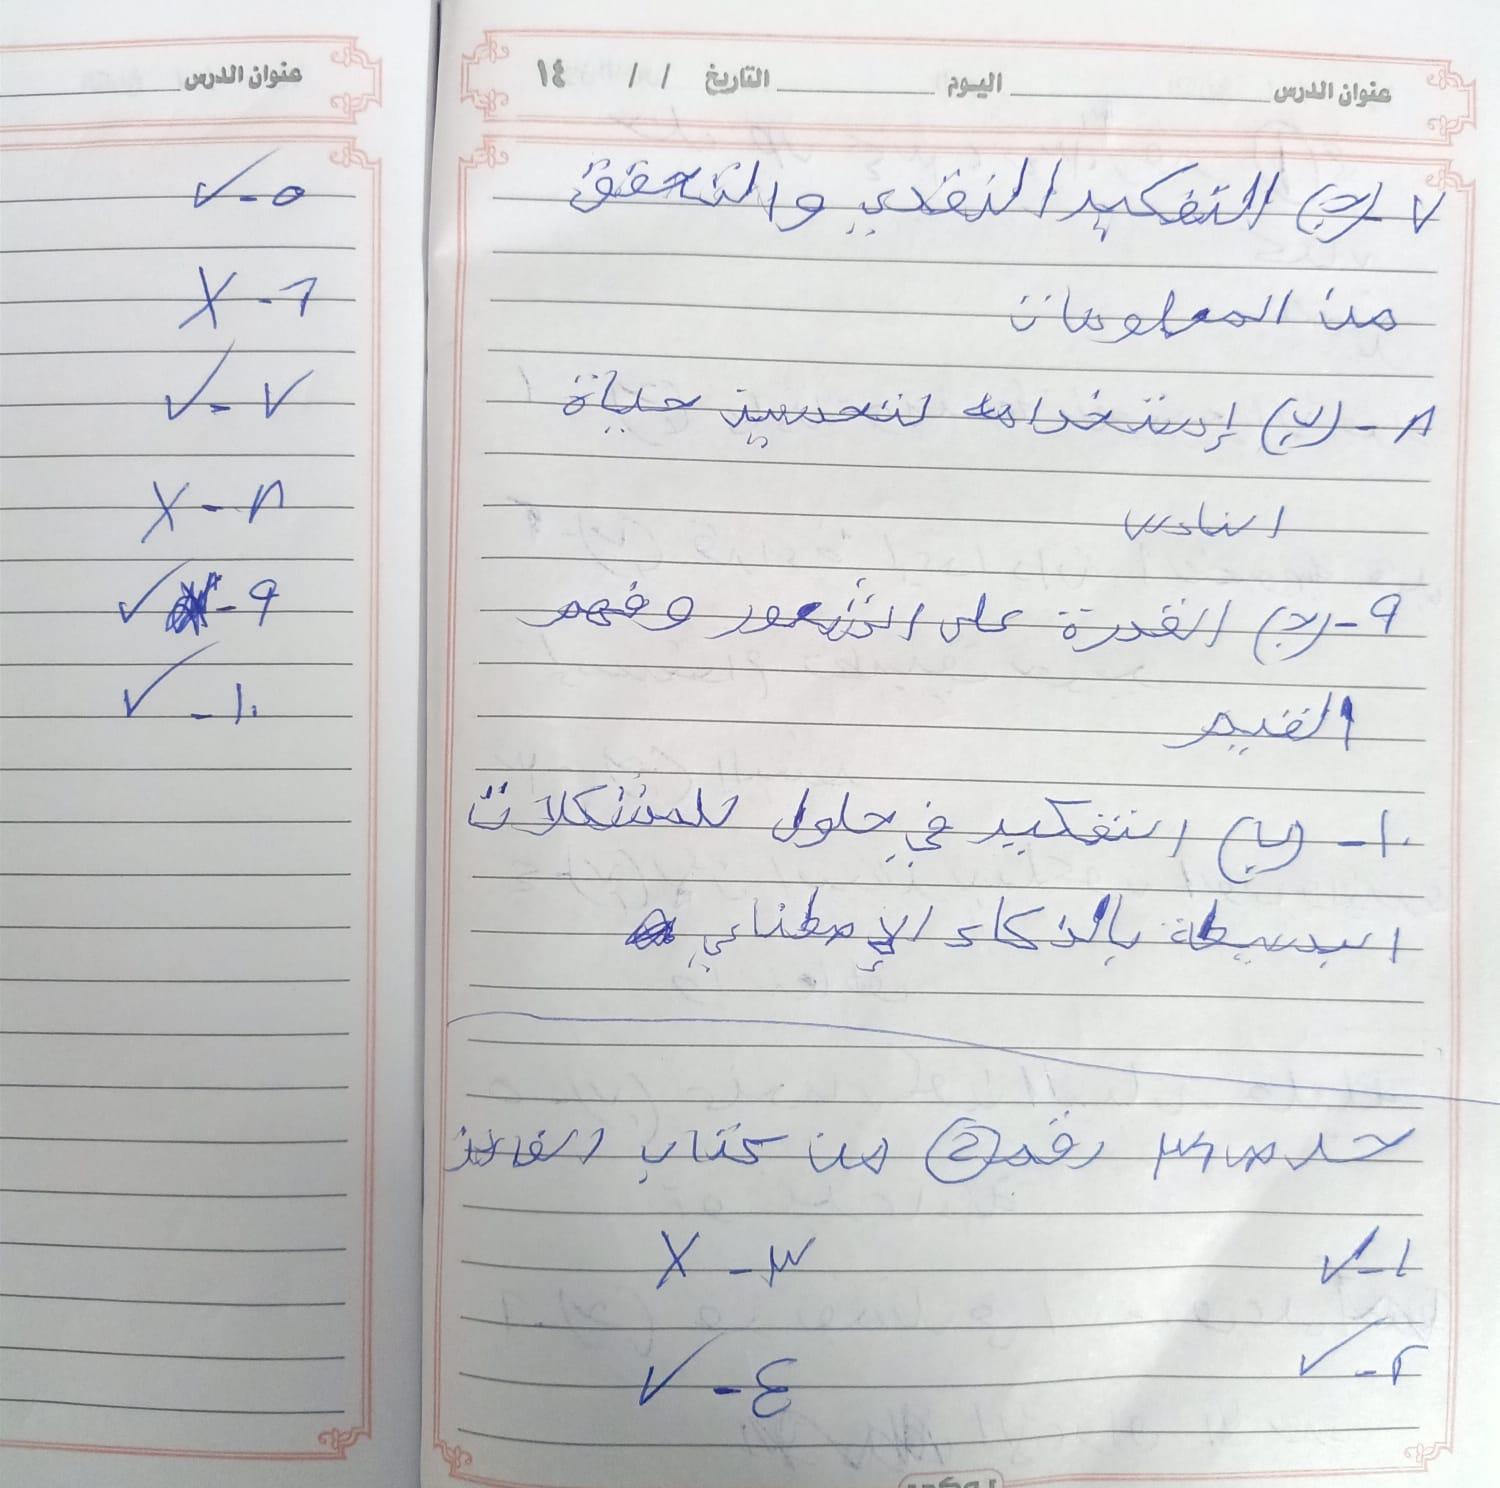 عنوان الدرس اليوم التاريخ / / ١٤
٧-(ج) التفكير النقدي والتحقق
من المعلومات
٨-(ب) إستخدامه لتحسين حياة
الناس
٩-(ج) القدرة على الشعور وفهم
القيم
١٠-(ب) التفكير في حلول للمشكلات
البسيطة بالذكاء الإصطناعي
حل رقم (2) من كتاب
١-✓ ٣-X
٢-✓ ٤-✓
عنوان الدرس
٥-✓
٦-X
٧-✓
٨-X
٩-✓
١٠-✓